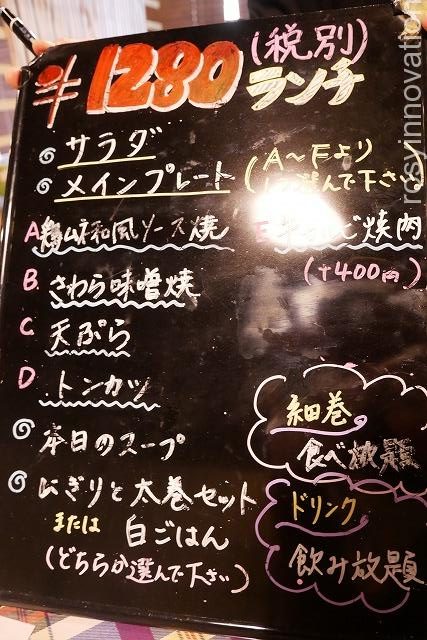 ¥1280(税別)
ランチ
サラダ
メインプレート(A～Fより
選んで下さい)
A 和風ソース焼
E 焼肉
(+400円)
B さわら味噌焼
C 天ぷら
D トンカツ
本日のスープ
細巻
食べ放題
にぎりと太巻セット
または 白ごはん
(どちらか選んで下さい)
ドリンク
飲み放題
rosyinnovation